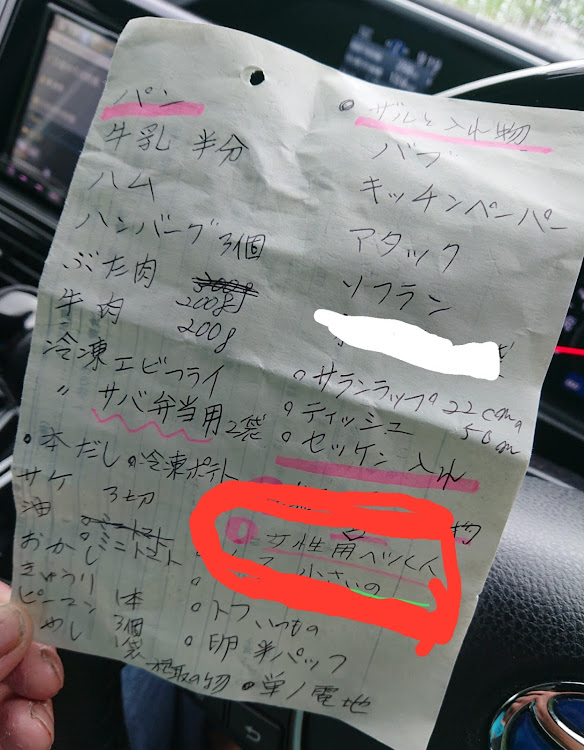 パン
牛乳 半分
ハム
ハンバーグ 3個
ぶた肉
200g
牛肉
200g
冷凍エビフライ
〃 サバ弁当用 2袋
本だし
冷凍ポテト
サケ 3切
油
ミニトマト
おかし
きゅうり 1本
ピーマン 3個
めし 1袋
ザルと入れ物
バブ
キッチンペーパー
アタック
ソフラン
サランラップ 22cm
50m
ティッシュ
セッケン入れ
物
女性用
小さいの
いつもの
卵 半パック
単1電池